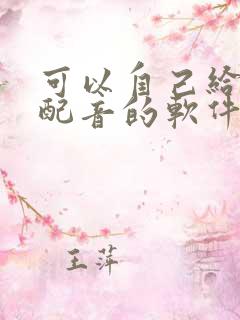 可以自己给
配音的软件
王萍